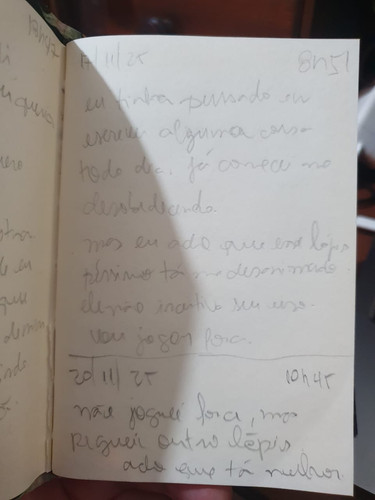 17h47
17/11/25 8h51
eu tinha pensado em
escrever alguma coisa
todo dia, já comecei me
desobedecendo.
mas eu acho que esse lápis
péssimo tá me desanimando
ele não incentiva seu uso.
vou jogar fora.
20/11/25 10h45
não joguei fora, mas
peguei outro lápis
acho que tá melhor.